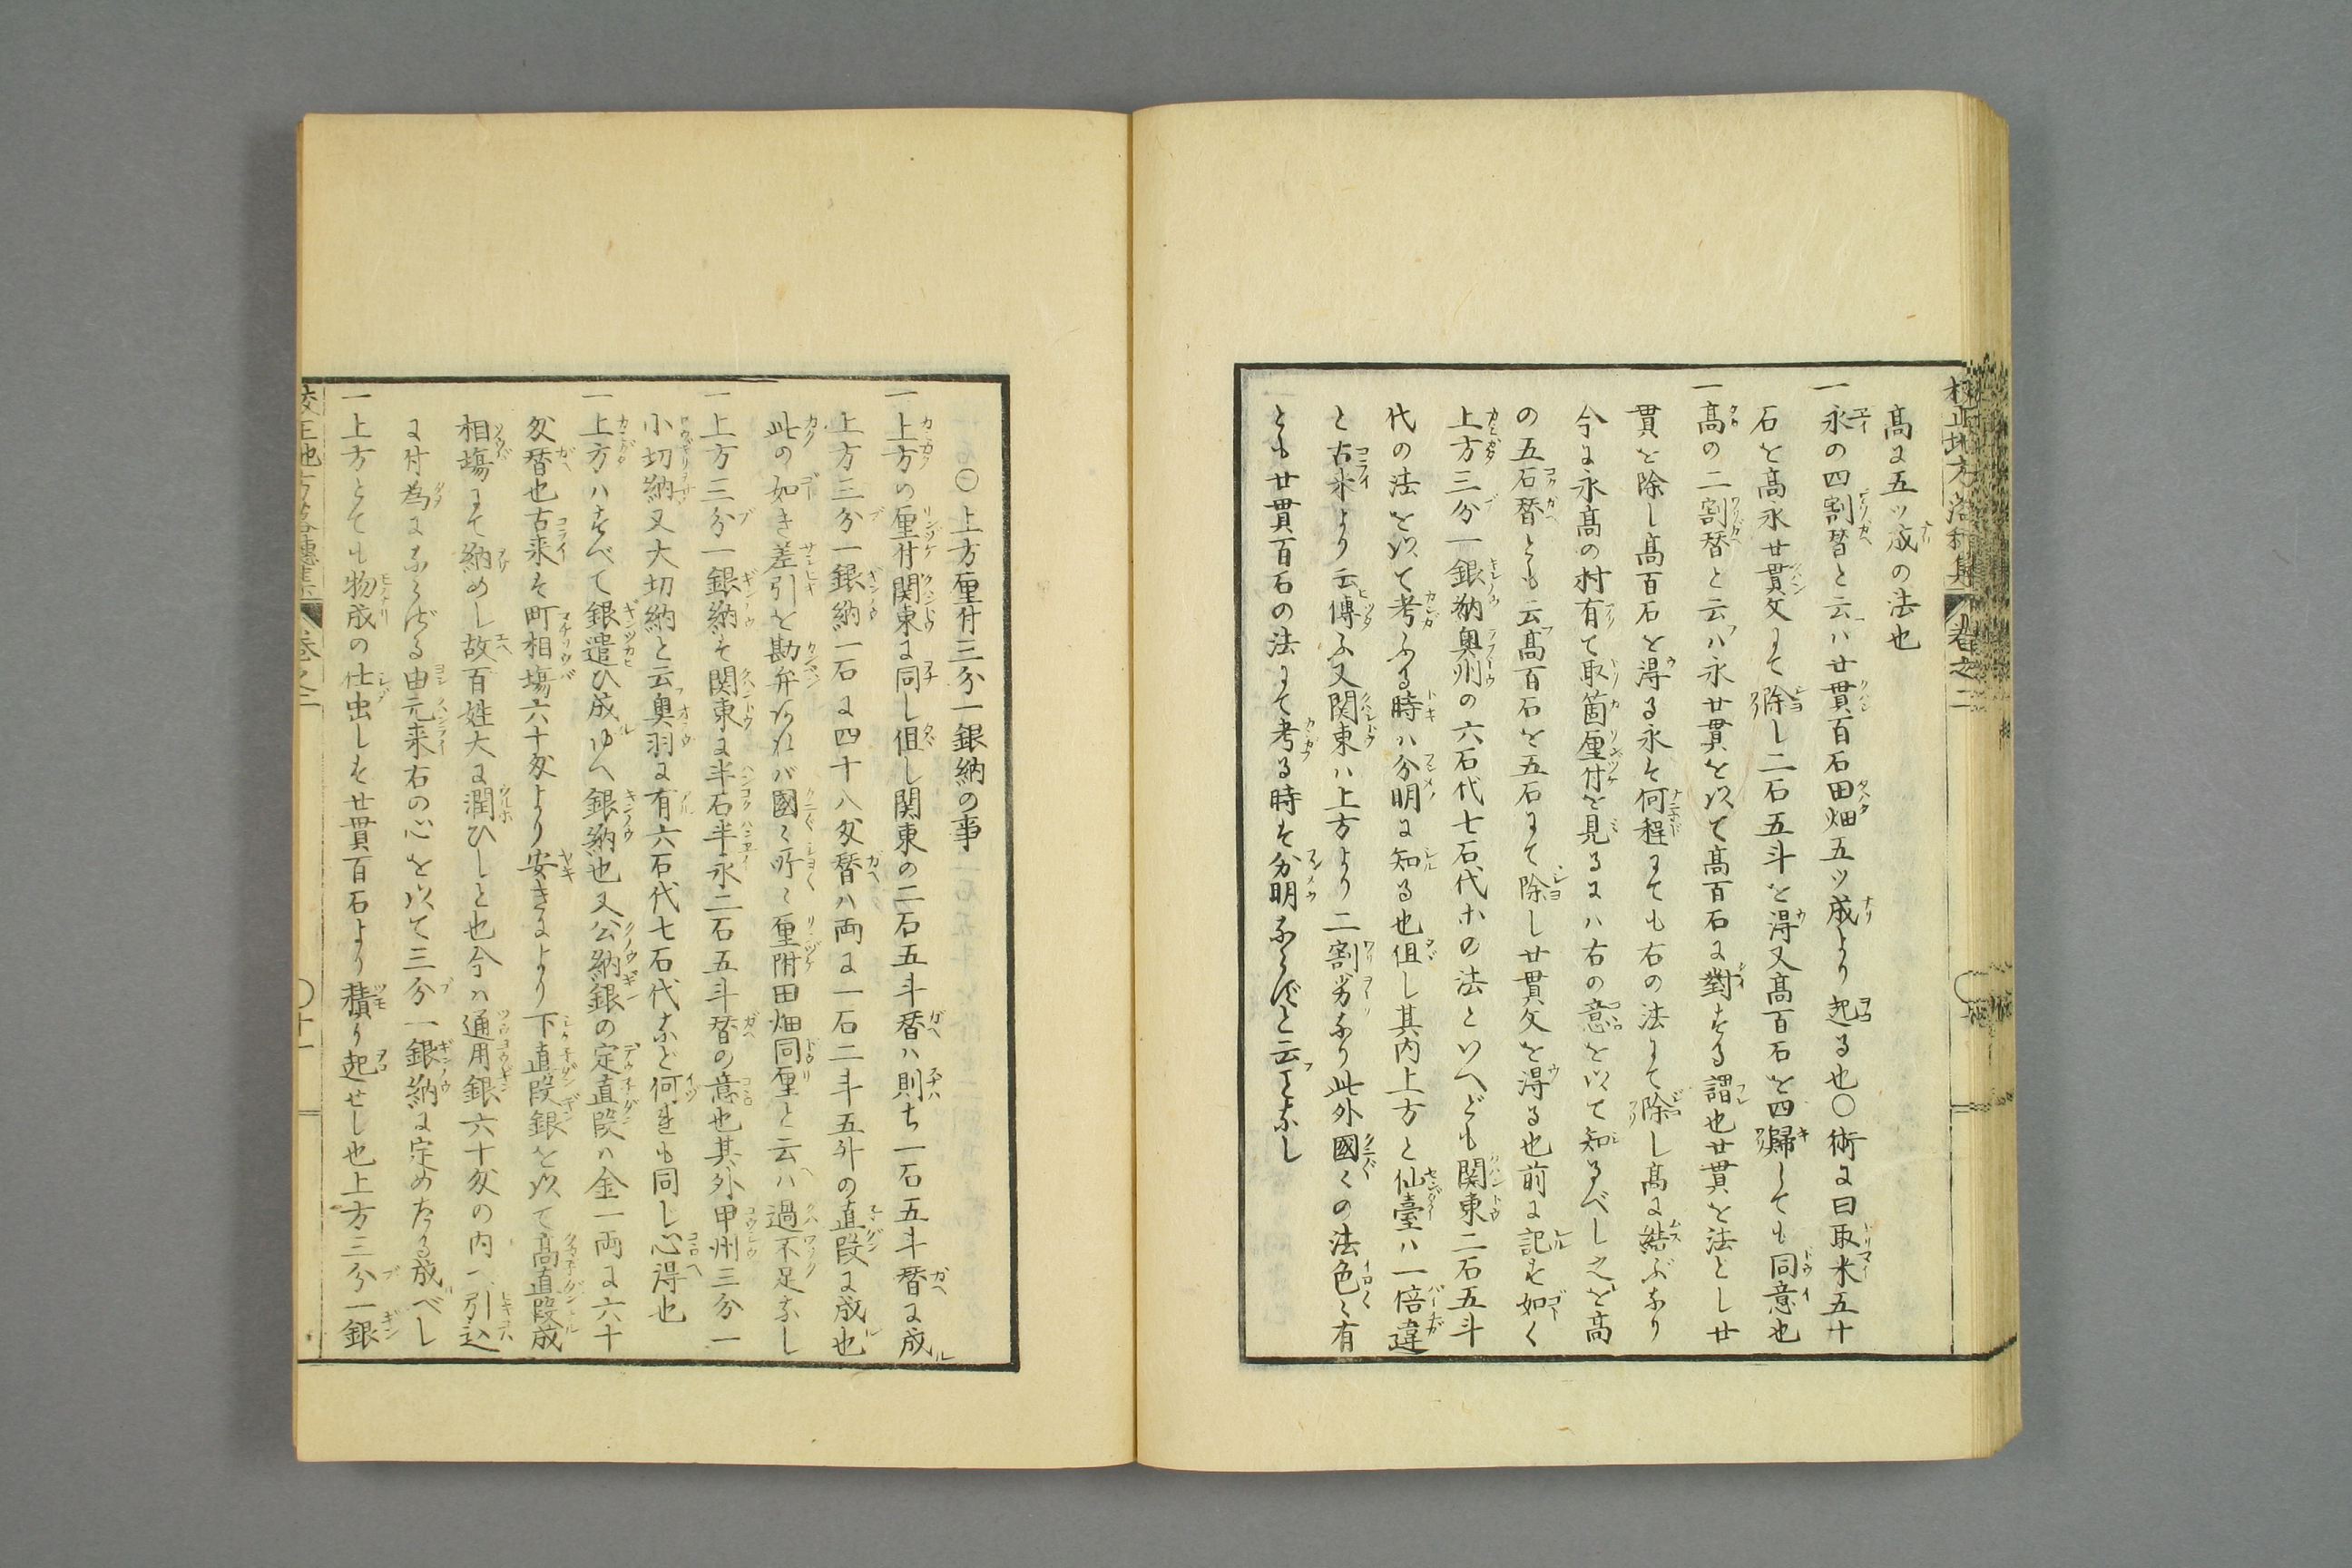 校正地方落穂集 巻之二
高に五ッ成の法也
一永の四割替と云ハ廿貫百石田畑五ッ成より起る也〇術に曰取米五十
石を高永廿貫文にて除し二石五斗を得又高百石を四歸しても同意也
一高の二割替と云ハ永廿貫を以て高百石に對する謂也廿貫を法とし廿
貫を除し高百石を得る永そ何程にても右の法にて除し高に結ぶなり
今に永高の村有て取箇厘付を見るにハ右の意を以て知るべし之を高
の五石替とも云高百石を五石にて除し廿貫文を得る也前に記す如く
上方三分一銀納奥州の六石代七石代ホの法といへども関東二石五斗
代の法を以て考ふる時ハ分明に知る也但し其内上方と仙臺ハ一倍違
と古来より云傳ふ又関東ハ上方より二割劣なり此外國くの法色ミ有
とも廿貫百石の法にて考る時そ分明ならずと云ことなし
〇上方厘付三分一銀納の事
一上方の厘付関東に同し但し関東の二石五斗替ハ則ち一石五斗替に成
上方三分一銀納一石に四十八匁替ハ両に一石二斗五升の直段に成也
此の如き差引を勘弁なけれバ國ミ所ミ厘附田畑同厘と云ハ過不足なし
一上方三分一銀納そ関東に半石半永二石五斗替の意也其外甲州三分一
小切納又大切納と云奥羽に有六石代七石代など何連も同し心得也
一上方ハすべて銀遣ひ成ゆへ銀納也又公納銀の定直段ハ金一両に六十
匁替也古来そ町相場六十匁より安きにより下直段銀を以て高直段成
相場にて納めし故百姓大に潤ひしと也今ハ通用銀六十匁の内へ引込
に付為にならざる由元来右の心を以て三分一銀納に定めたる成べし
一上方とても物成の仕出しそ廿貫百石より積り起せし也上方三分一銀
校正地方落穂集 巻之二 〇十一